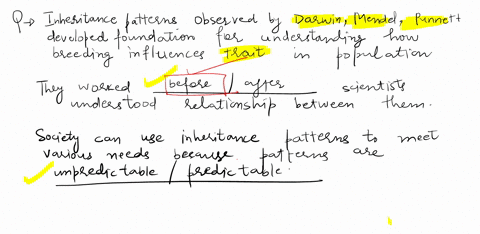 Q→ Inheritance patterns observed by Darwin, Mendel, Punnett
developed foundation for understanding how
breeding influences trait in population
They worked before / after scientists
understood relationship between them.
Society can use inheritance patterns to meet
various needs because patterns are
unpredictable / predictable.